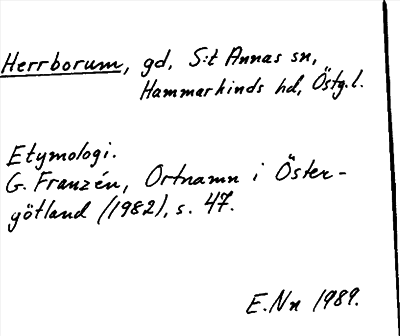 Herrborum, gd, S:t Annas sn,
Hammarkinds hd, Östg.l.
Etymologi.
G. Franzén, Ortnamn i Öster-
götland (1982), s. 47.
E.Nn 1989.